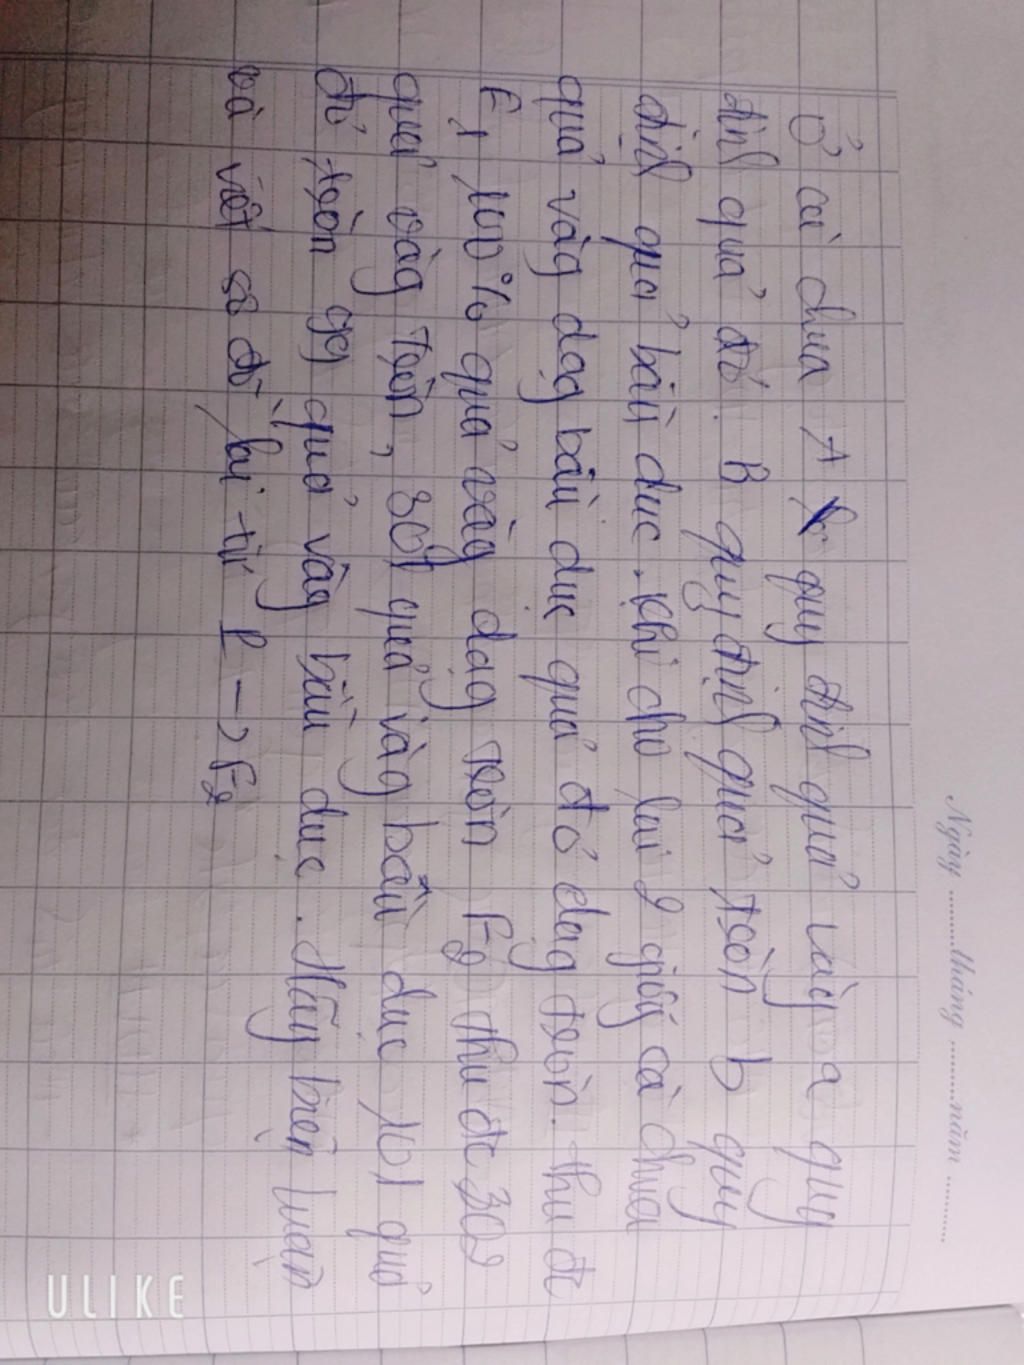 Ngày ............tháng ...........năm ............
Ở cà chua A quy định quả vàng a quy
định quả đỏ. B quy định quả tròn b quy
định quả bầu dục. Khi cho lai 2 giống cà chua
quả vàg dạg bầu dục quả đỏ dạg tròn. thu đc
F1 100% quả vàg dạg tròn F2 thu đc 302
quả vàg tròn, 301 quả vàg bầu dục 101 quả
đỏ tròn quả vàg bầu dục. Hãy biện luận
và viết sơ đồ lai từ P → F2
ULIKE